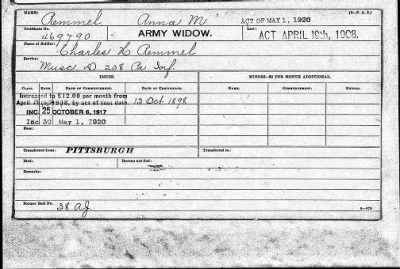 NAME: Remmel Anna M ACT OF MAY 1, 1920
Certificate No. 469790 ARMY WIDOW. ACT APRIL 19th, 1908.
Name of Soldier: Charles H Remmel
Service: Musc D 208 Pa Inf.
ISSUES. MINORS—$2 PER MONTH ADDITIONAL.
CLASS. RATE. DATE OF COMMENCEMENT. DATE OF CERTIFICATE. NAME. COMMENCEMENT.
Increased to $12.00 per month from
April 19, 1908, by act of that date 13 Oct 1898
INC. 25 OCTOBER 6, 1917
Inc 30 May 1, 1920
Transferred from: PITTSBURGH Transferred to:
Died: Bureau notified:
Remarks:
Former Roll No. 38 AJ